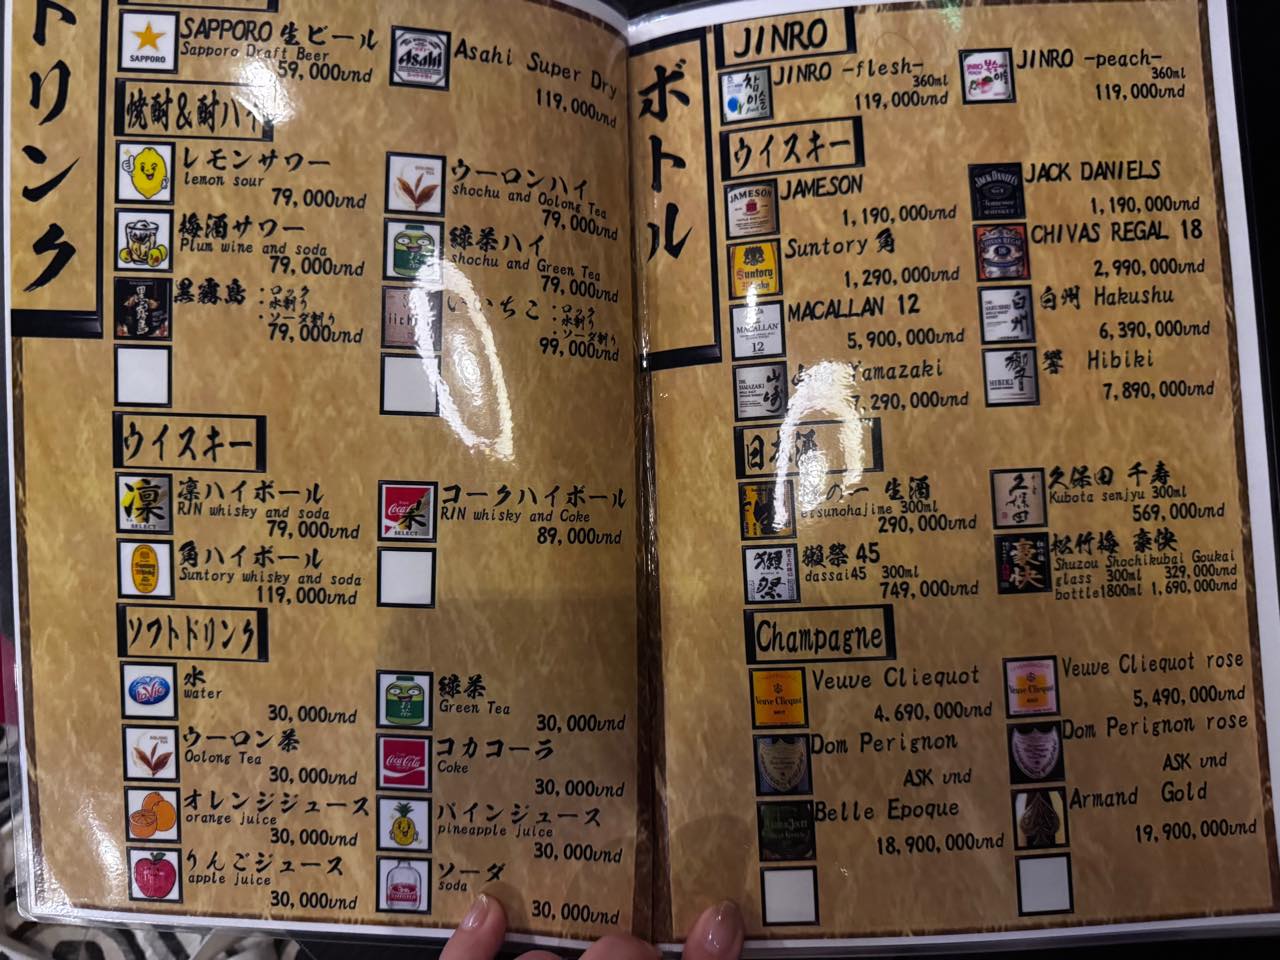 ドリンク
SAPPORO 生ビール
Sapporo Draft Beer
59,000vnd
Asahi Super Dry
119,000vnd
焼酎&酎ハイ
レモンサワー
lemon sour
79,000vnd
ウーロンハイ
shochu and Oolong Tea
79,000vnd
梅酒サワー
Plum wine and soda
79,000vnd
緑茶ハイ
shochu and Green Tea
79,000vnd
黒霧島 :ロック
・水割り
・ソーダ割り
79,000vnd
いいちこ :ロック
水割り
・ソーダ割り
99,000vnd
ウイスキー
凛ハイボール
RIN whisky and soda
79,000vnd
コークハイボール
RIN whisky and Coke
89,000vnd
角ハイボール
Suntory whisky and soda
119,000vnd
ソフトドリンク
水
water
30,000vnd
緑茶
Green Tea
30,000vnd
ウーロン茶
Oolong Tea
30,000vnd
コカコーラ
Coke
30,000vnd
オレンジジュース
orange juice
30,000vnd
パインジュース
pineapple juice
30,000vnd
りんごジュース
apple juice
30,000vnd
ソーダ
soda
30,000vnd
ボトル
JINRO
JINRO -flesh-
360ml
119,000vnd
JINRO -peach-
360ml
119,000vnd
ウイスキー
JAMESON
1,190,000vnd
JACK DANIELS
1,190,000vnd
Suntory 角
1,290,000vnd
CHIVAS REGAL 18
2,990,000vnd
MACALLAN 12
5,900,000vnd
白州 Hakushu
6,390,000vnd
Yamazaki
7,290,000vnd
響 Hibiki
7,890,000vnd
日本酒
の一 生酒
etsunohajime 300ml
290,000vnd
久保田 千寿
Kubota senjyu 300ml
569,000vnd
獺祭 45
dassai45 300ml
749,000vnd
松竹梅 豪快
Shuzou Shochikubai Goukai
glass 300ml 329,000vnd
bottle1800ml 1,690,000vnd
Champagne
Veuve Cliequot
4.690,000vnd
Veuve Cliequot rose
5,490,000vnd
Dom Perignon
ASK vnd
Dom Perignon rose
ASK vnd
Belle Epoque
18,900,000vnd
Armand Gold
19,900,000vnd